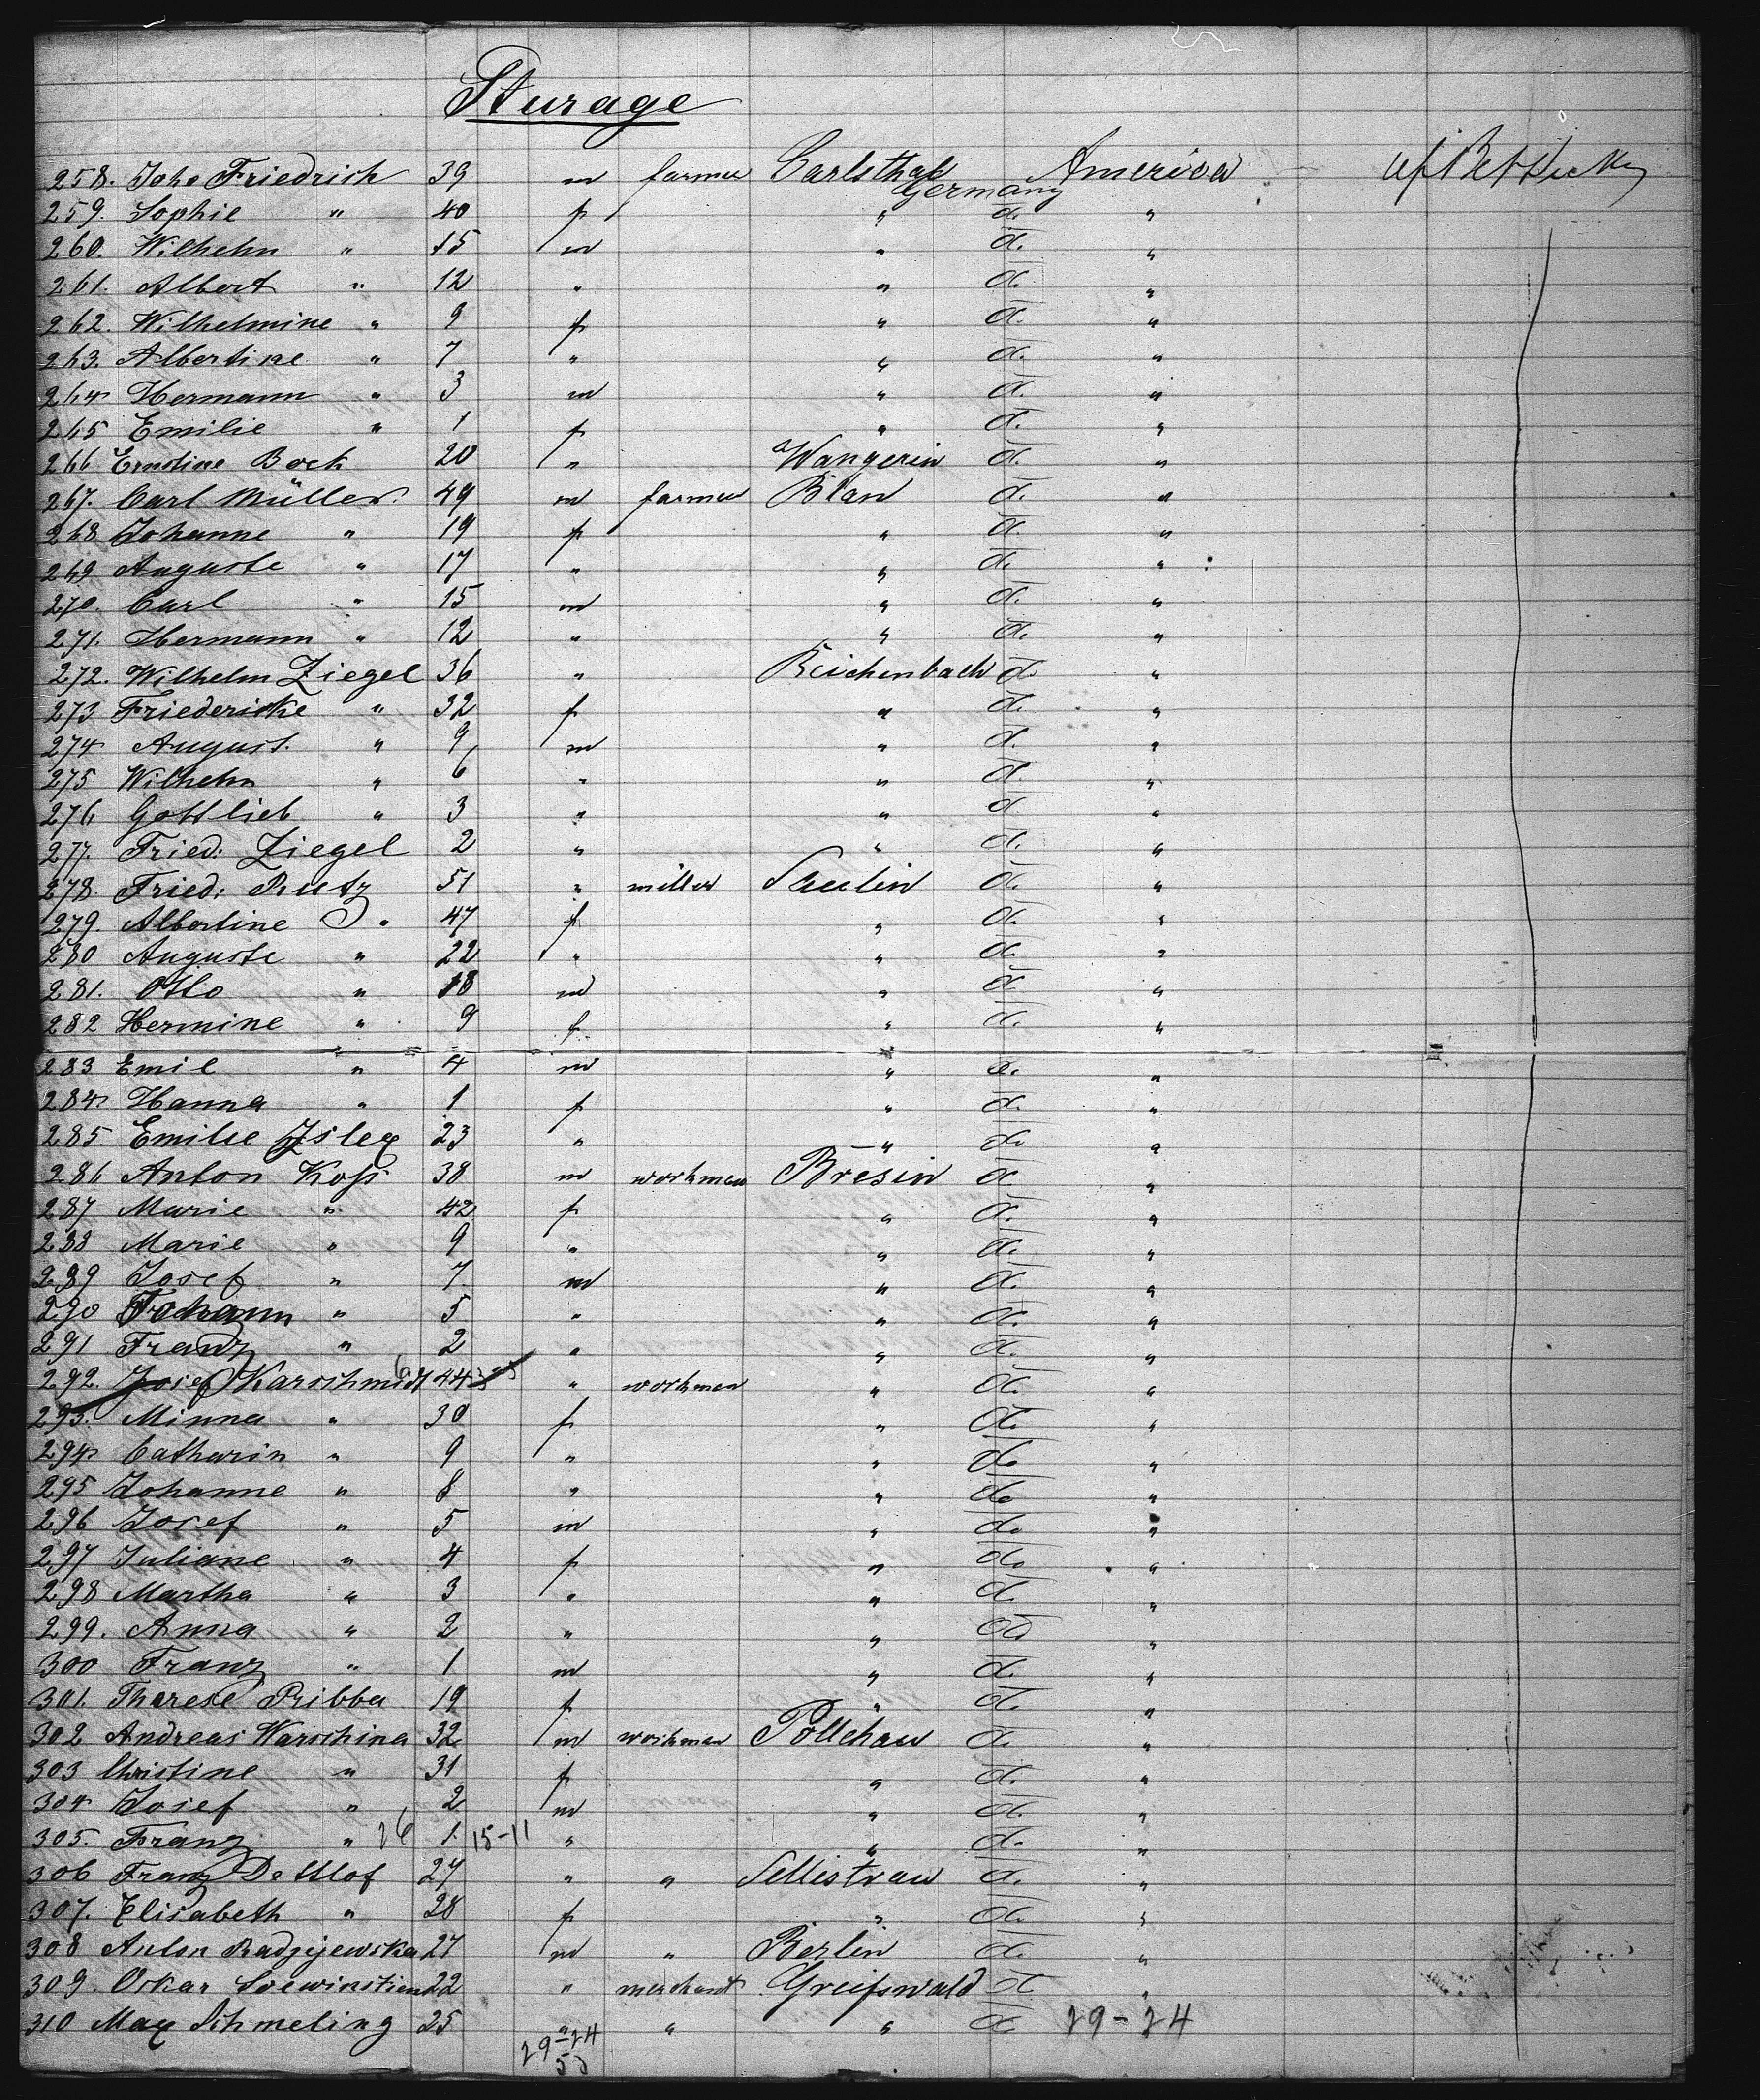 Sturage
258. Joho Friedrich 39 m farmer Carlsthal Germany America
259. Sophie " 40 f " do "
260. Wilhelm " 15 m " do "
261. Albert " 12 " " do "
262. Wilhelmine " 9 f " do "
263. Albertine " 7 " " do "
264 Hermann " 3 m " do "
265 Emilie " 1 f " do "
266 Ernstine Bock 20 " Wangerin do "
267. Carl Müller 49 m farmer Blan do "
268 Johanne " 19 f " do "
269 Auguste " 17 " " do "
270. Carl " 15 m " do "
271. Hermann " 12 " " do "
272. Wilhelm Ziegel 36 " Reichenbach do "
273 Friedericke " 32 f " do "
274 August " 9 m " do "
275 Wilhelm " 6 " " do "
276 Gottlieb " 3 " " do "
277. Fried: Ziegel 2 " " do "
278. Fried: Rutz 51 " miller do "
279. Albertine " 47 f " do "
280 Auguste " 22 " " do "
281. Otto " 18 m " do "
282 Hermine " 9 f " do "
283 Emil " 4 m " do "
284 Hanna " 1 f " do "
285 Emilie 23 " " do "
286 Anton Koss 38 m workman Bresin do "
287 Marie " 42 f " do "
288 Marie " 9 " " do "
289 Josef " 7 m " do "
290 Johann " 5 " " do "
291 Franz " 2 " " do "
292. Josef Karschmidt 44 " workman " do "
293. Minna " 30 f " do "
294 Catharin " 9 " " do "
295 Johanne " 8 " " do "
296 Josef " 5 m " do "
297 Juliane " 4 f " do "
298 Martha " 3 " " do "
299. Anna " 2 " " do "
300 Franz " 1 m " do "
301. Therese Pribba 19 f " do "
302 Andreas Warschina 32 m workman Pollchau do "
303 Christine " 31 f " do "
304 Josef " 2 m " do "
305. Franz " 16 1 15-11 " " do "
306 Franz Dettlof 27 " " Sellistrau do "
307. Elisabeth " 28 f " do "
308 Anton Radzijewska 27 m " Berlin do "
309. Oskar Loewinstien 22 " merchant Greifswald do "
310 Max Schmeling 25 " " " do 29-24
29-24
53